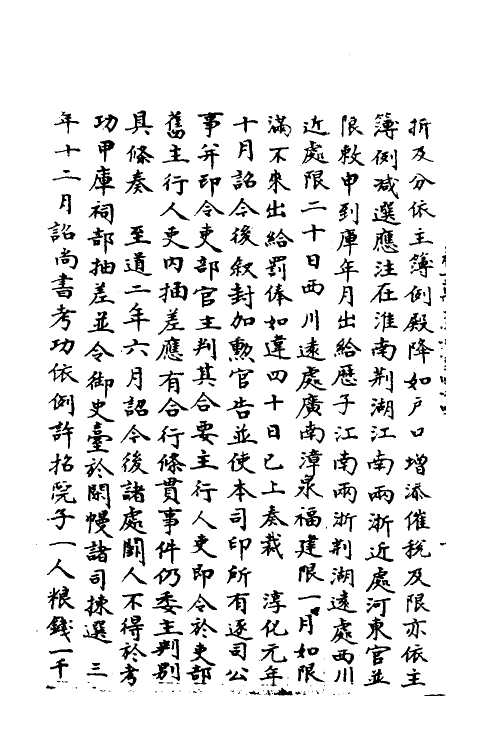 折及分依主簿例殿降如戶口增添催稅及限亦依主
簿例减選應注在淮南荆湖江南兩浙近處河東官並
限敕申到庫年月出給歷子江南兩浙荆湖遠處西川
近處限二十日西川遠處廣南漳泉福建限一月如限
滿不來出給罰俸如違四十日已上奏裁　淳化元年
十月詔今後叙封加勲官告並使本司印所有逐司公
事并印令吏部官主判其合要主行人吏即令於吏部
舊主行人吏内抽差應有合行條貫事件仍委主判别
具條奏　至道二年六月詔令後諸處闕人不得於考
功甲庫祠部抽差並令御史臺於閑慢諸司揀選　三
年十二月詔尚書考功依例許招院子一人粮錢一千